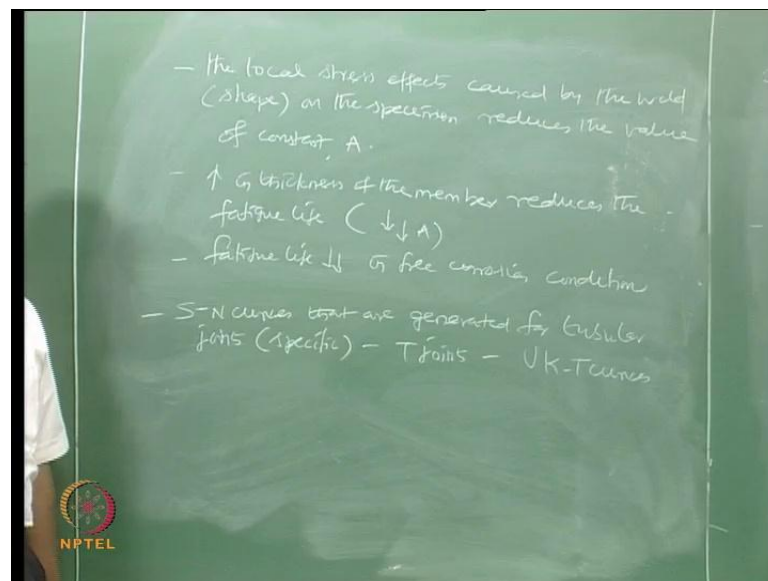 - the local stress effects caused by the weld
(shape) on the specimen reduces the value
of constant, A.
- ↑ in thickness of the member reduces the
fatigue life (↓↓ A)
- fatigue life ↓↓ in free corrosion condition
- S-N curves that are generated for tubular
joints (specific) - T joints - UK-T curves
NPTEL